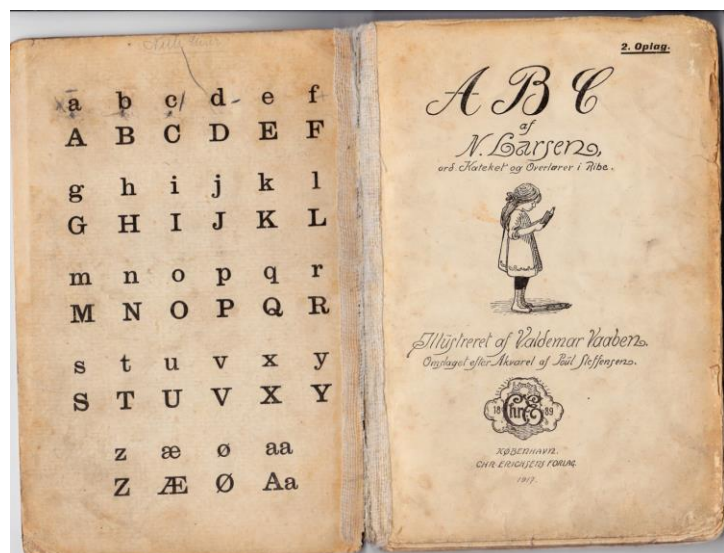 a b c d e f
A B C D E F
g h i j k l
G H I J K L
m n o p q r
M N O P Q R
s t u v x y
S T U V X Y
z æ ø aa
Z Æ Ø Aa
2. Oplag.
A B C
af
N. Larsen,
ord. Kateket og Overlærer i Ribe.
Illustreret af Valdemar Vaaben.
Omslaget efter Akvarel af Poul Steffensen.
18 Chr E 89
KØBENHAVN.
CHR. ERICHSENS FORLAG
1917.